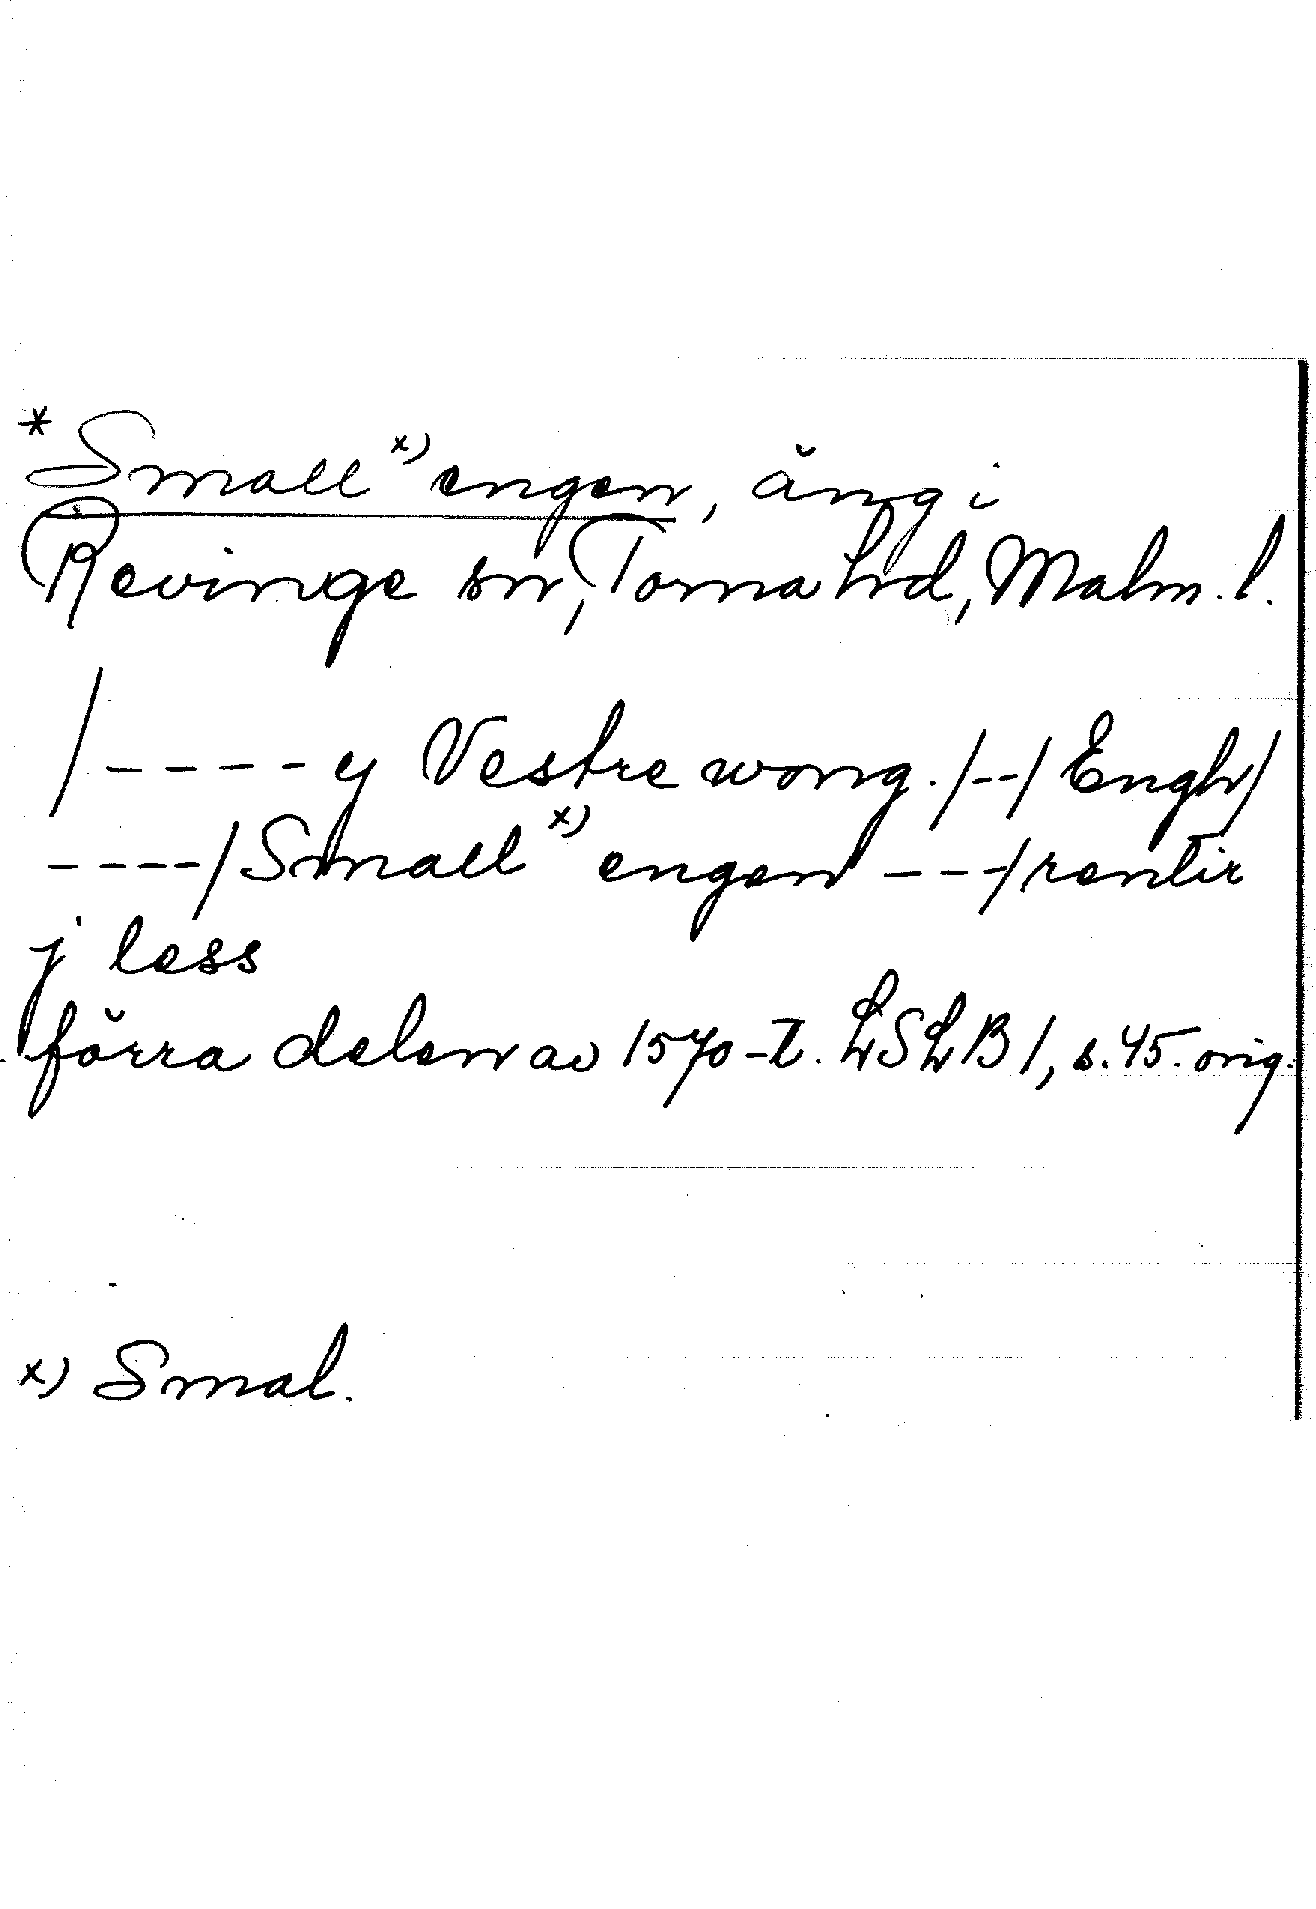 *Smallˣ⁾ engen, äng i
Revinge sn, Torna hd, Malm. l.
/---- y Vestre wong. /--/ Engh/
----/ Smallˣ⁾ engen ---/ rentir
jless
förra delen av 1570-t. LSLB 1, s. 45. orig.
x) Smal.